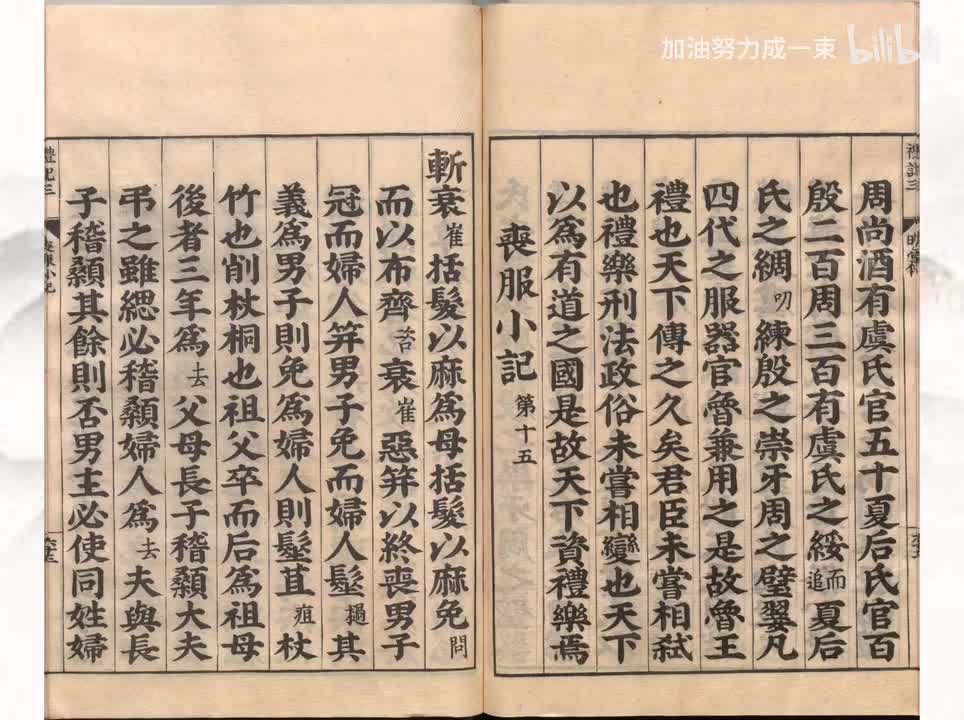 加油努力成一束 bilibili
周尚酒有虞氏官五十夏后氏官百
殷二百周三百有虞氏之綏而追夏后
氏之綢叨練殷之崇牙周之璧翣凡
四代之服器官魯兼用之是故魯王
禮也天下傳之久矣君臣未嘗相弑
也禮樂刑法政俗未嘗相變也天下
以為有道之國是故天下資禮樂焉
喪服小記第十五
斬衰崔括髮以麻為母括髮以麻免問
而以布齊衰崔惡笄以終喪男子
冠而婦人笄男子免而婦人髽其
義為男子則免為婦人則髽苴疽杖
竹也削杖桐也祖父卒而后為祖母
後者三年為去父母長子稽顙大夫
弔之雖緦必稽顙婦人為去夫與長
子稽顙其餘則否男主必使同姓婦
禮記三
喪服小記
禮記三
明堂位